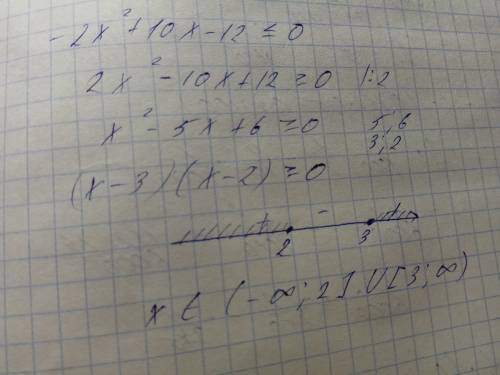 -2x²+10x-12≤0
2x²-10x+12≥0 |:2
x²-5x+6≥0 5; 6
3; 2
(x-3)(x-2)≥0
+ - +
2 3
x ∈ (-∞; 2] U [3; ∞)